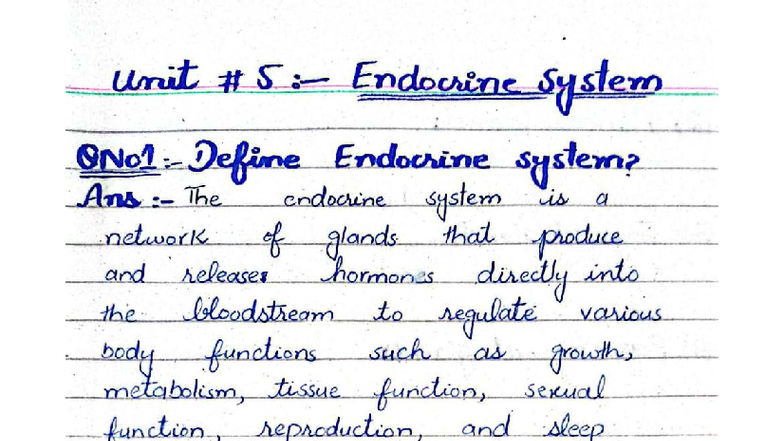 Unit # 5 :- Endocrine system
QNo1 :- Define Endocrine system?
Ans :- The endocrine system is a
network of glands that produce
and releases hormones directly into
the bloodstream to regulate various
body functions such as growth,
metabolism, tissue function, sexual
function, reproduction, and sleep